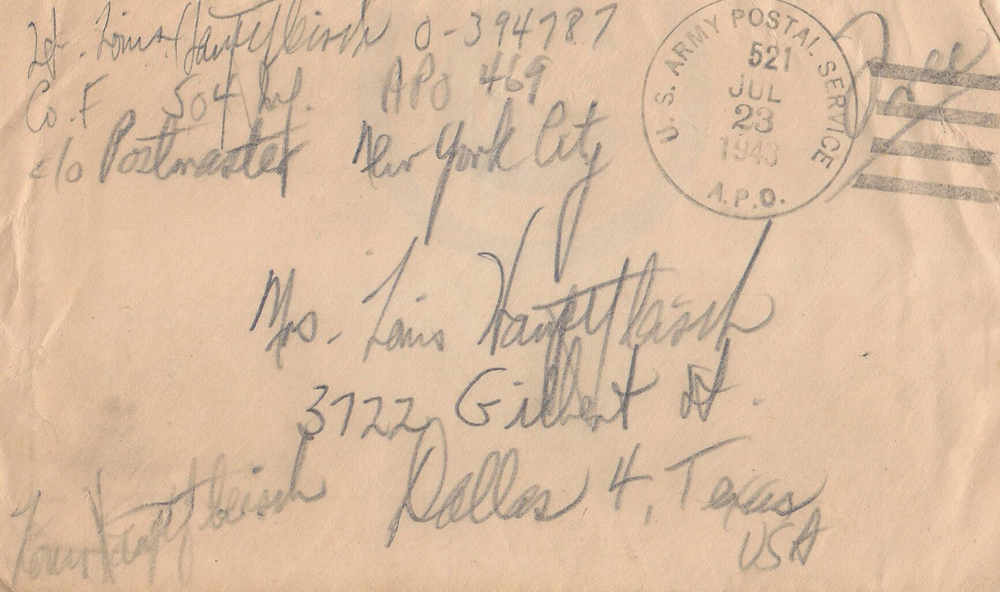 Lt. Louis Hauptfleisch O-394787
Co. F 504 Inf. APO 469
c/o Postmaster New York City
U.S. ARMY POSTAL SERVICE
521
JUL
23
1943
A.P.O.
Free
Mrs. Louis Hauptfleisch
3722 Gilbert St.
Dallas 4, Texas
USA
Louis Hauptfleisch